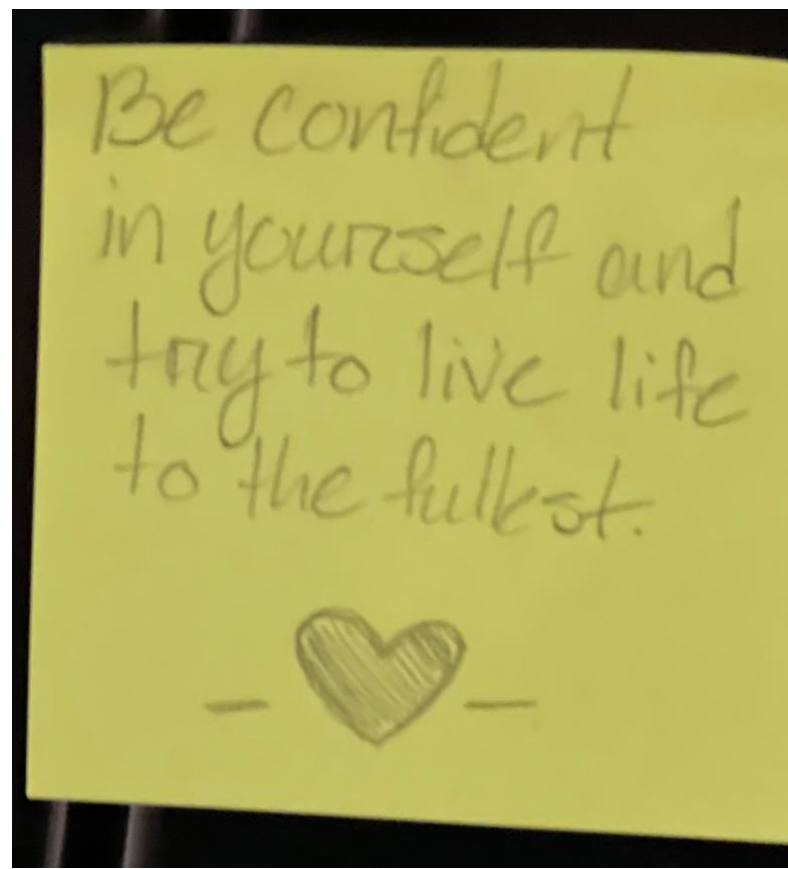 Be confident
in yourself and
try to live life
to the fullest.